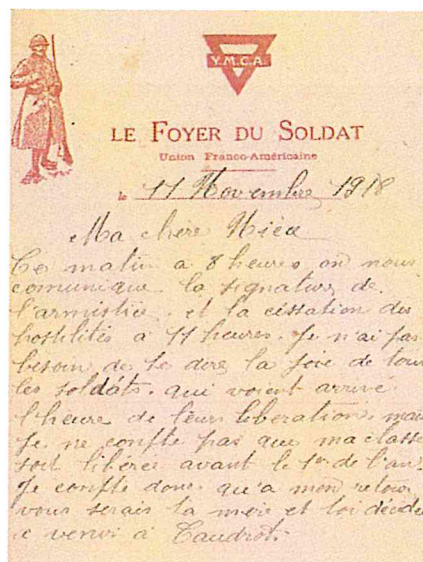 Y.M.C.A.
LE FOYER DU SOLDAT
Union Franco-Américaine
le 11 Novembre 1918
Ma chère Nièce
Ce matin a 8 heures on nous
comunique la signature de
l'armistice et la céssation des
hostilités a 11 heures. Je n'ai pas
besoin de te dire la joie de tous
les soldats. qui voient arrive
l'heure de leur liberation. mais
Je ne compte pas que ma classe
soit liberée avant le 1er de l'an.
Je compte donc qu'a mon retour
vous serais la mère et toi décidé
a venir à Caudrot.